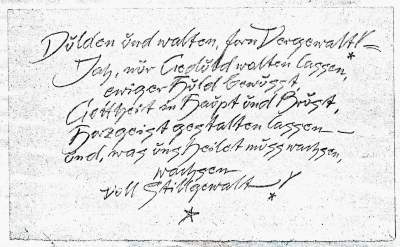 Dulden und walten, fern Vergewalt!
Jah, nur Geduld walten lassen,*
ewiger Huld bewusst,
Gottheit in Haupt und Brust,
Herzgeist gestalten lassen —
und, was uns heilet muss wachsen,
wachsen
voll Stillgewalt!